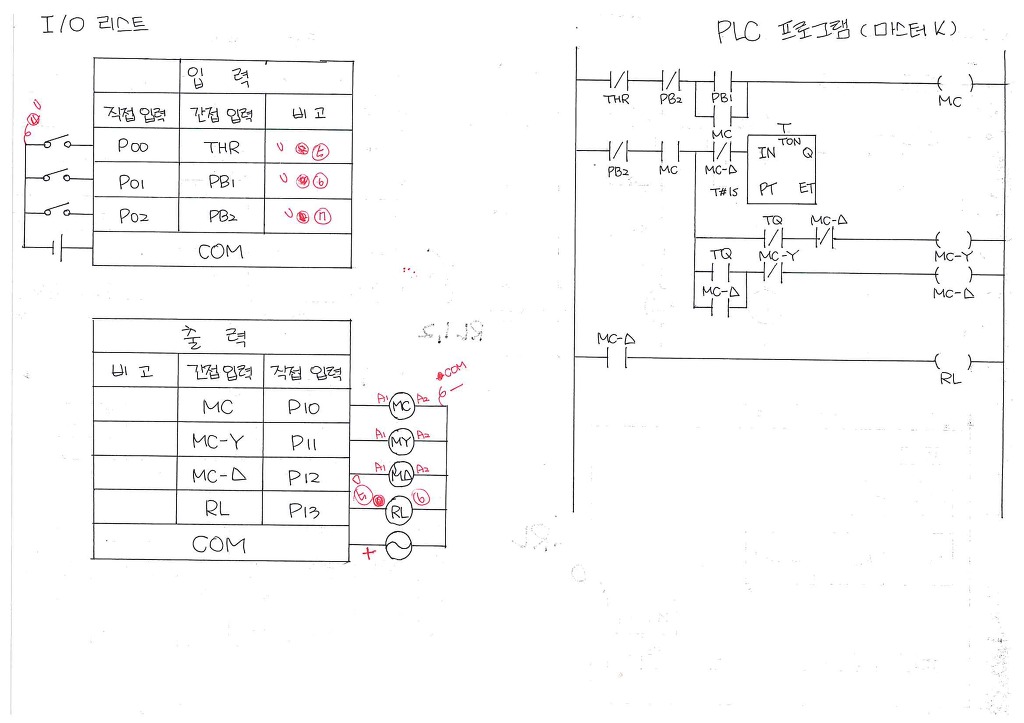 I/O 리스트
입 력
직접 입력 간접 입력 비고
P00 THR
P01 PB1
P02 PB2
COM
출 력
비고 간접 입력 직접 입력
MC P10 A1 MC A2 COM
MC-Y P11 A1 MY A2
MC-Δ P12 A1 MΔ A2
RL P13 RL
COM +
PLC 프로그램 (마스터 K)
THR PB2 PB1 MC
MC
T
TON
PB2 MC MC-Δ IN Q
T#1S PT ET
TQ MC-Δ MC-Y
TQ MC-Y MC-Δ
MC-Δ
MC-Δ RL